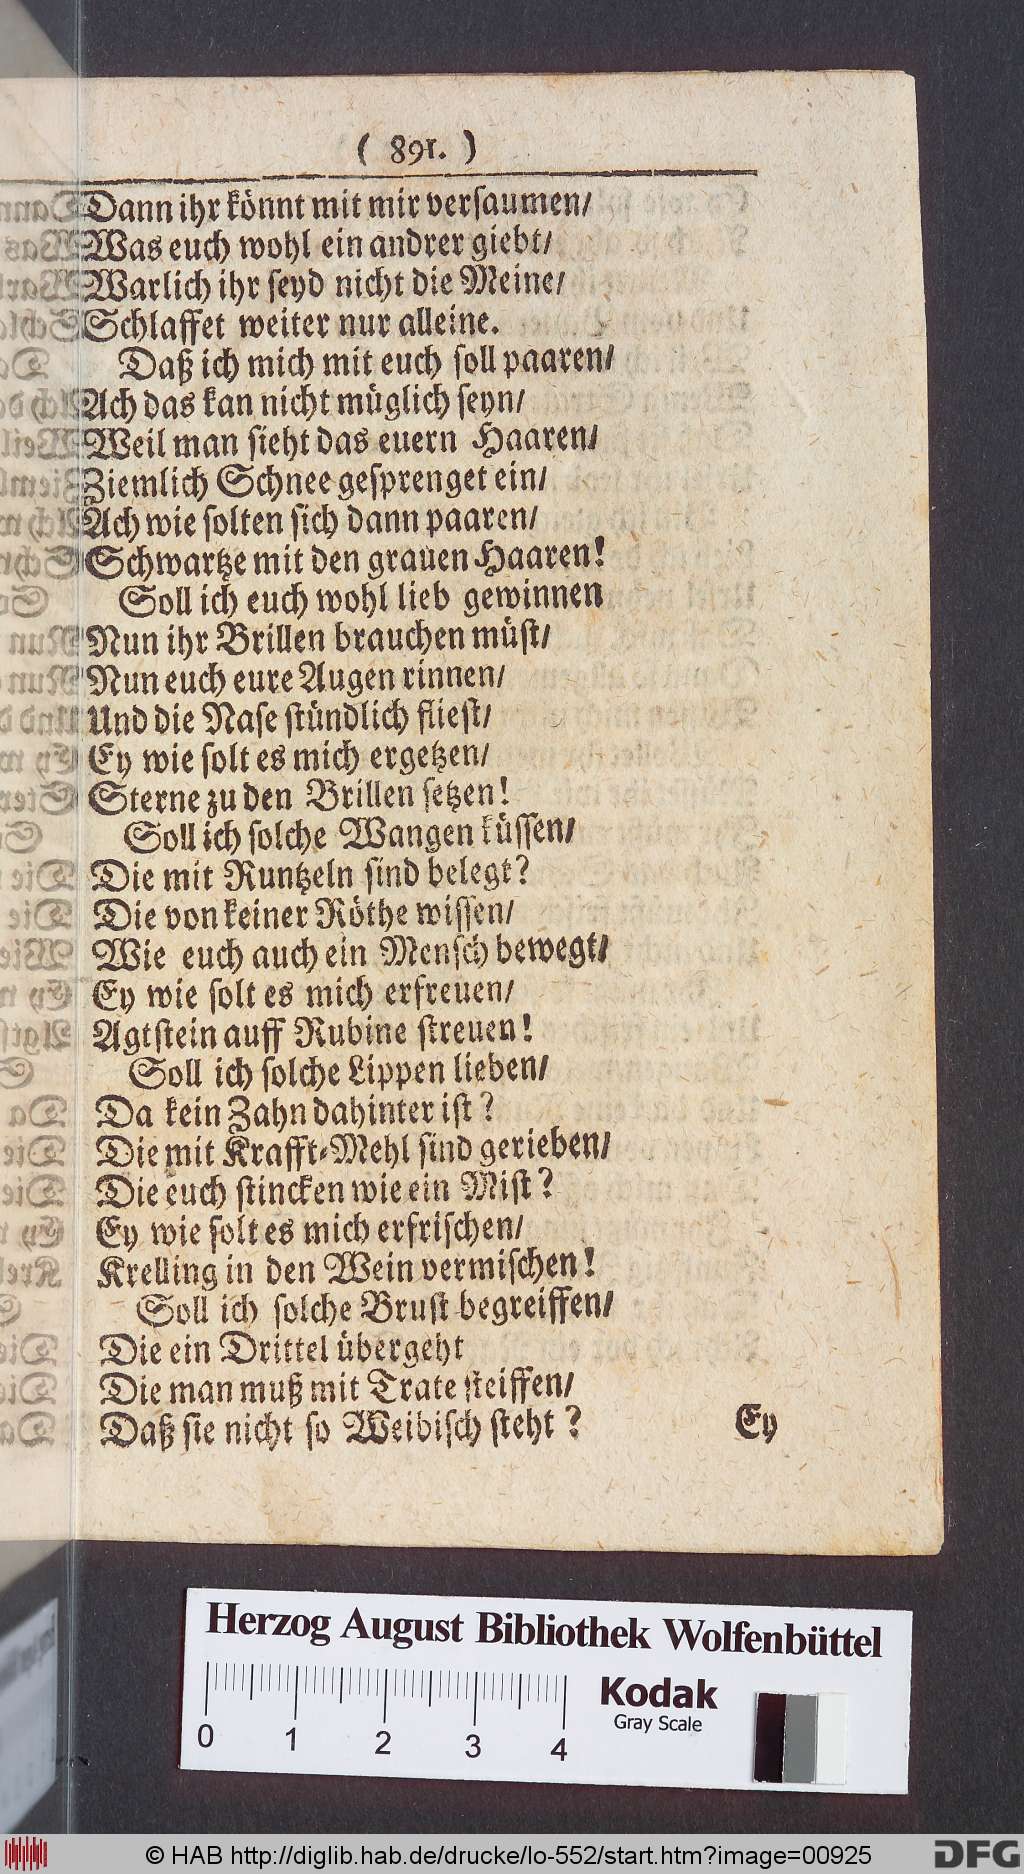 ( 891. )
Dann ihr könnt mit mir versaumen/
Was euch wohl ein andrer giebt/
Warlich ihr seyd nicht die Meine/
Schlaffet weiter nur alleine.
Daß ich mich mit euch soll paaren/
Ach das kan nicht müglich seyn/
Weil man sieht das euern Haaren/
Ziemlich Schnee gesprenget ein/
Ach wie solten sich dann paaren/
Schwartze mit den grauen Haaren!
Soll ich euch wohl lieb gewinnen
Nun ihr Brillen brauchen müst/
Nun euch eure Augen rinnen/
Und die Nase stündlich fliest/
Ey wie solt es mich ergetzen/
Sterne zu den Brillen setzen!
Soll ich solche Wangen küssen/
Die mit Runtzeln sind belegt?
Die von keiner Röthe wissen/
Wie euch auch ein Mensch bewegt/
Ey wie solt es mich erfreuen/
Agtstein auff Rubine streuen!
Soll ich solche Lippen lieben/
Da kein Zahn dahinter ist?
Die mit Krafft-Mehl sind gerieben/
Die euch stincken wie ein Mist?
Ey wie solt es mich erfrischen/
Krelling in den Wein vermischen!
Soll ich solche Brust begreiffen/
Die ein Drittel übergeht
Die man muß mit Trate steiffen/
Daß sie nicht so Weibisch steht?
Ey
Herzog August Bibliothek Wolfenbüttel
0 1 2 3 4
Kodak
Gray Scale
© HAB http://diglib.hab.de/drucke/lo-552/start.htm?image=00925
DFG